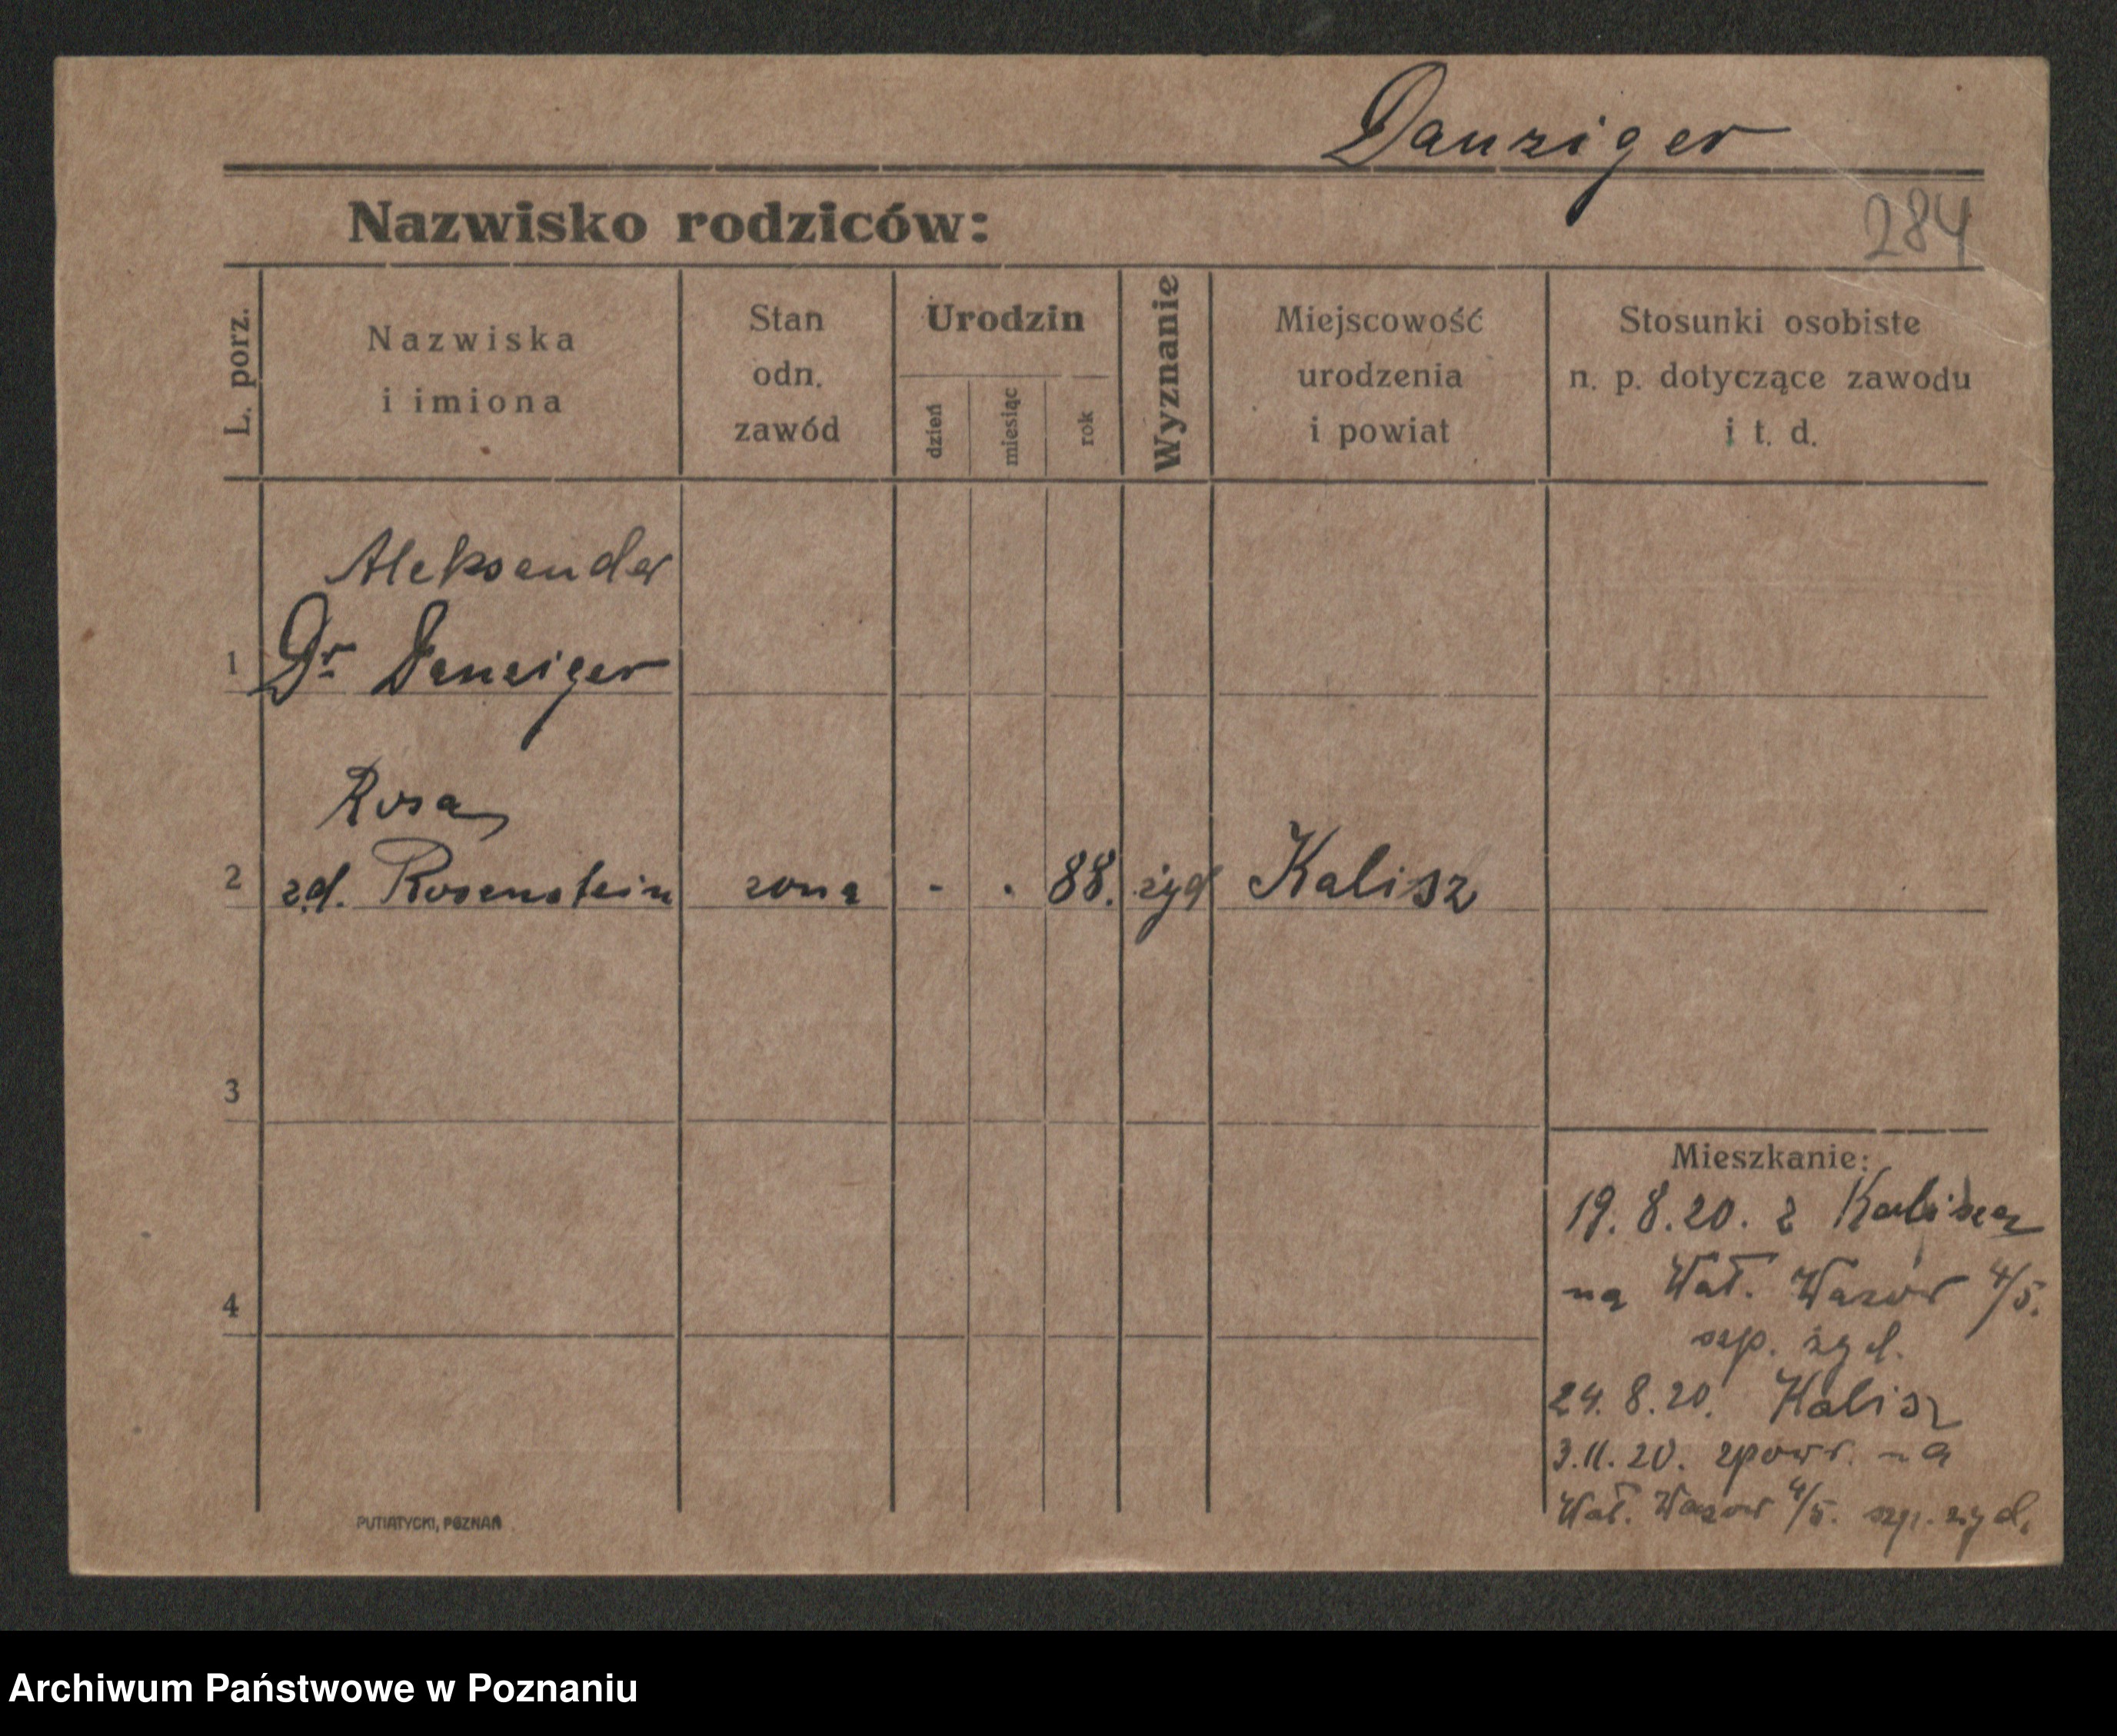 Danziger
Nazwisko rodziców:
284
L. porz.
Nazwiska
i imiona
Stan
odn.
zawód
Urodzin
dzień
miesiąc
rok
Wyznanie
Miejscowość
urodzenia
i powiat
Stosunki osobiste
n. p. dotyczące zawodu
i t. d.
Aleksander
1 Dr Danziger
Rosa
2 zd. Rosenstein zona - . 88. żyd Kalisz
3
4
Mieszkanie:
19. 8. 20. z Kalisza
na Wał. Wazów 4/5.
szp. żyd.
24. 8. 20. Kalisz
3. 11. 20. zpowr. na
Wał. Wazów 4/5. szp. żyd.
PUTIATYCKI, POZNAŃ
Archiwum Państwowe w Poznaniu